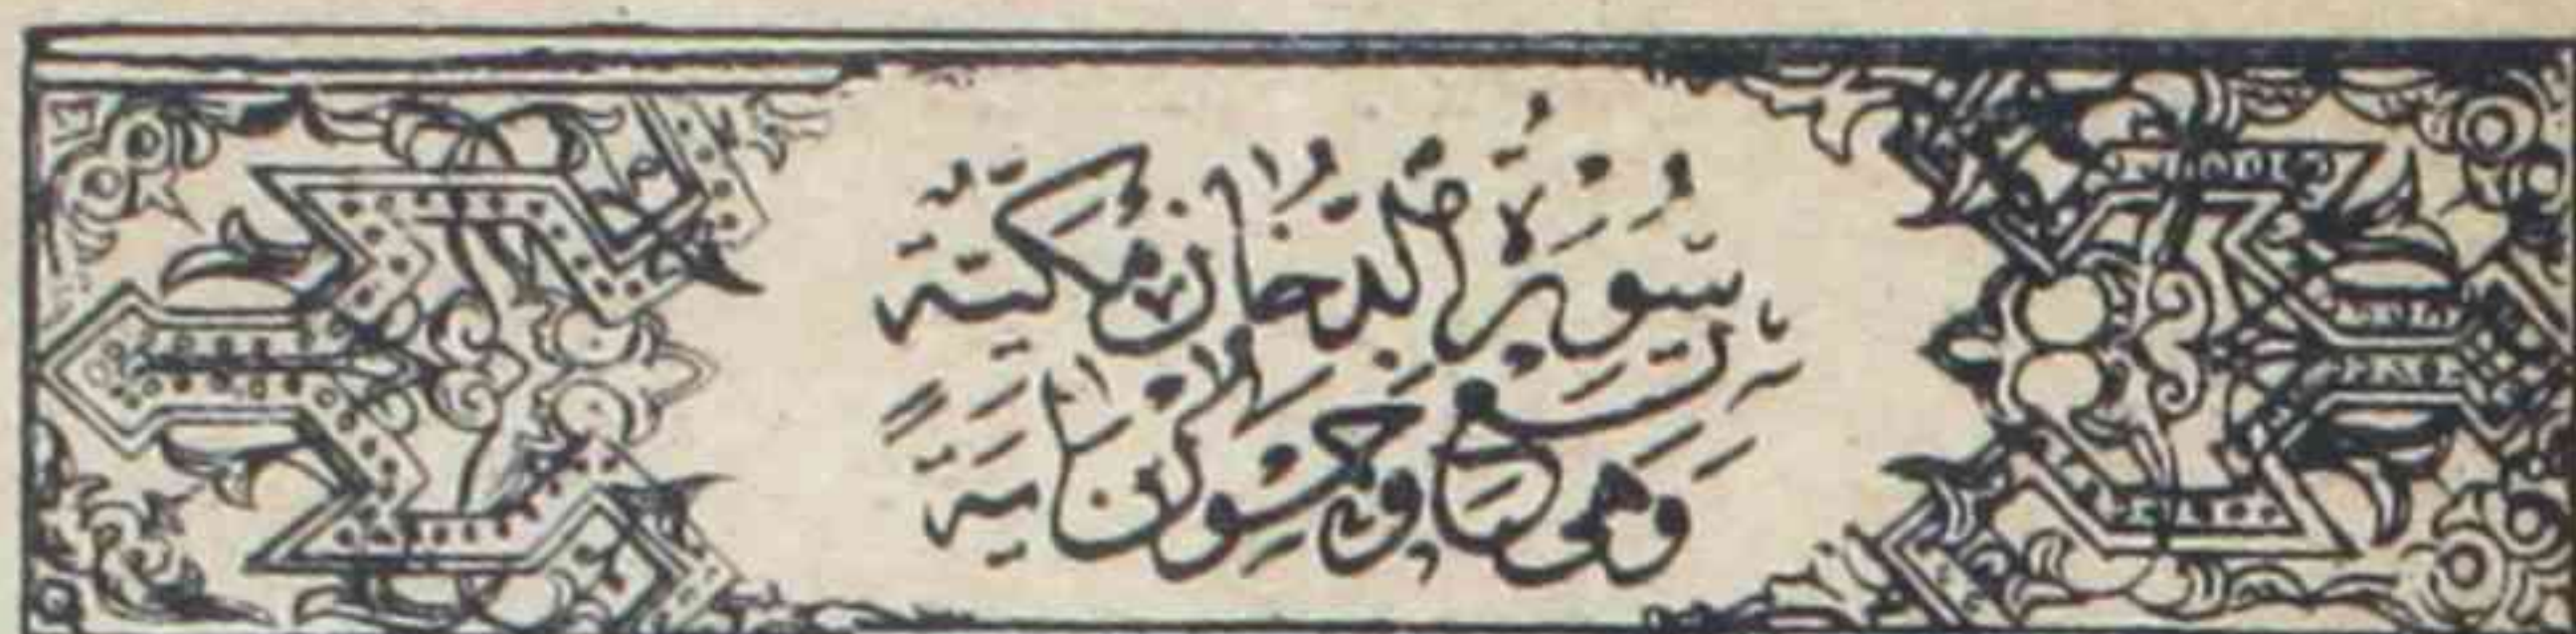 سُورَةُ الدُّخَانِ مَكِّيَّةٌ
وَهِىَ تِسْعٌ وَخَمْسُونَ اٰيَةً